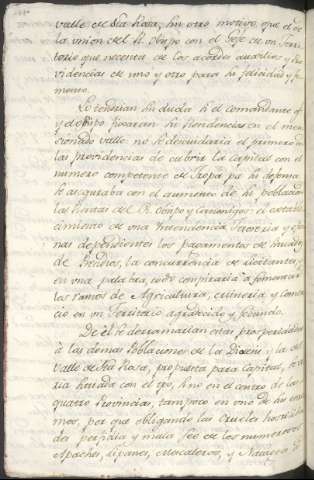 valle de Sta Rosa, sin otro motivo, que el de
la union del R. Obispo con el Gefe en un Terri-
torio que necesita de los acordes auxilios y Pro-
videncias de uno y otro para su felicidad y fo-
mento.
Lo tendrian sin duda si el comandante gl.
y el obispo fixaran sus Residencias en el men-
cionado valle: no se descuidaria el primero en
las providencias de cubrir la capital con el
numero competente de Tropa pa. su defensa
se aseguraba con el aumento de su poblacion
las Rentas del R. Obispo y Canonigos: el estable-
cimiento de una Yntendencia Tesoreria y ofici-
nas dependientes los pagamentos de
de Yndios, la concurrencia de litigantes, y
en una palabra, todo conspiraria à fomentar
los ramos de Agricultura, crianza y comer-
cio en un Territorio agradecido y fecundo.
De él se derramarian estas prosperidades
à las demas Poblaciones de la Diocesi, y la del
Valle de Sta Rosa, propuesta para Capital, se-
ria situada con el tpo, sino en el centro de las
quatro Provincias, tampoco en uno de sus extre-
mos, por que obligando las crueles hostilida-
des perfidia y mala fee de los numerosos
Apaches, Lipanes, Mescaleros, y